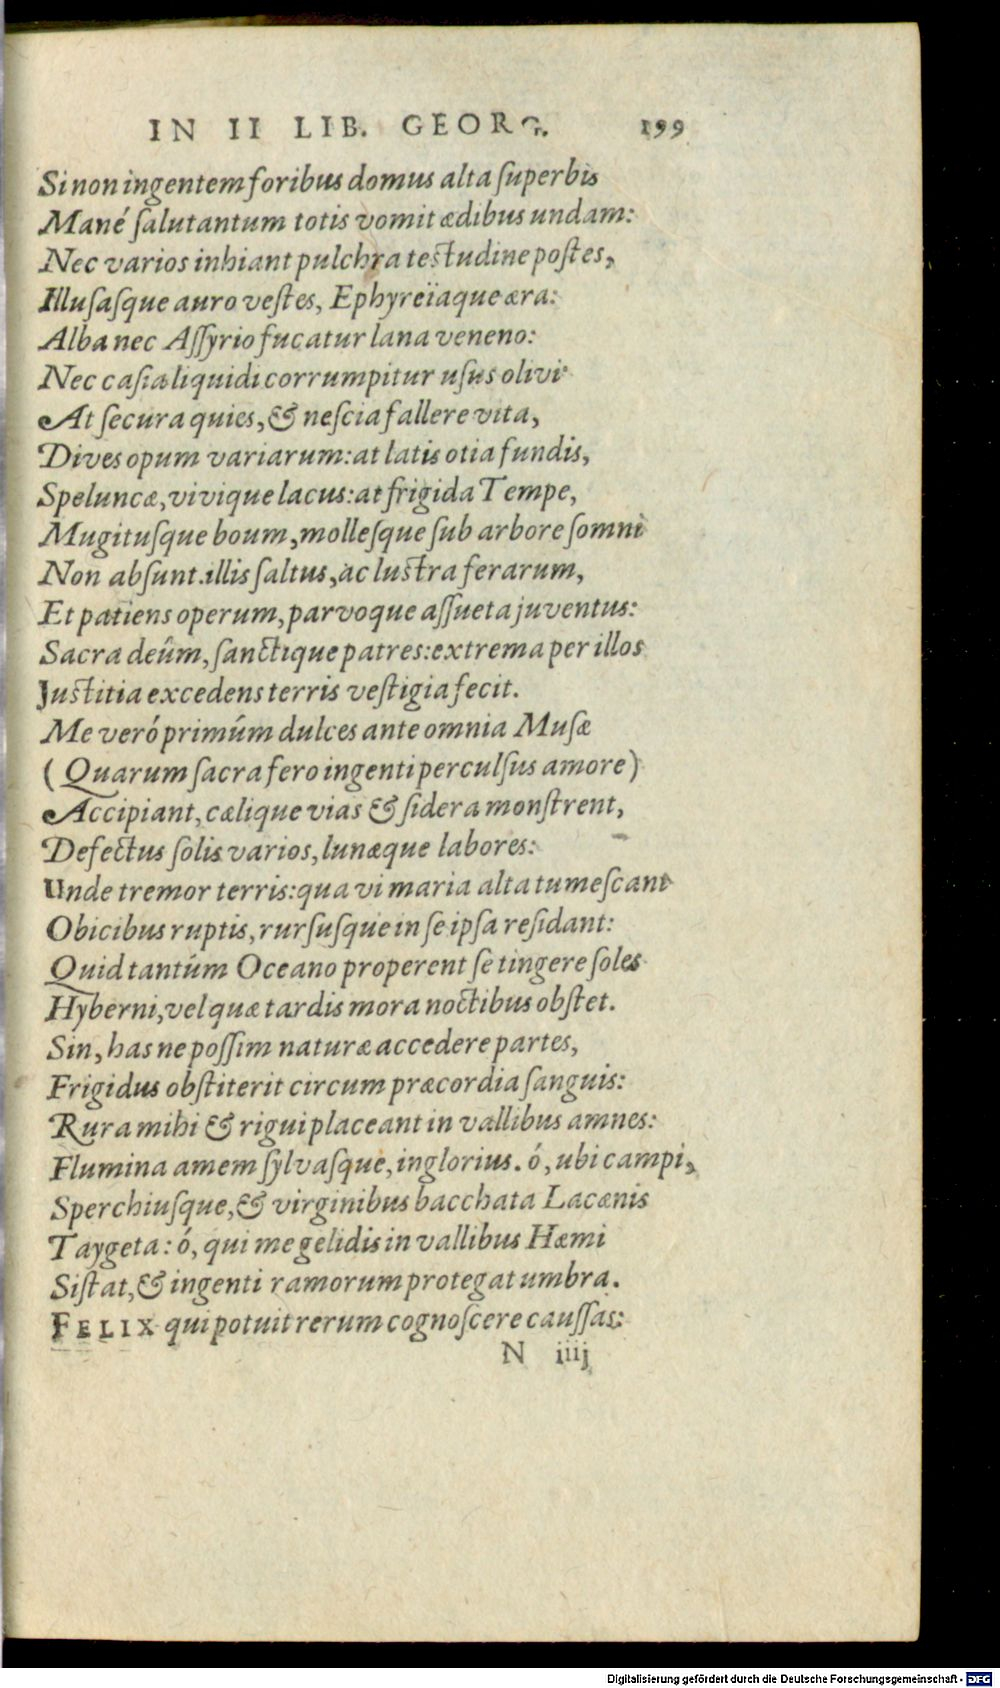 IN II LIB. GEORG. 199
Si non ingentem foribus domus alta ſuperbis
Mané ſalutantum totis vomit ædibus undam:
Nec varios inhiant pulchra teſtudine poſtes,
Illuſaſque auro veſtes, Ephyreïaque æra:
Alba nec Aſſyrio fucatur lana veneno:
Nec caſia liquidi corrumpitur uſus olivi
At ſecura quies, & neſcia fallere vita,
Dives opum variarum: at latis otia fundis,
Speluncæ, vivique lacus: at frigida Tempe,
Mugituſque boum, molleſque ſub arbore ſomni
Non abſunt. illis ſaltus, ac luſtra ferarum,
Et patiens operum, parvoque aſſueta juventus:
Sacra deûm, ſanctique patres: extrema per illos
Juſtitia excedens terris veſtigia fecit.
Me veró primúm dulces ante omnia Muſæ
(Quarum ſacra fero ingenti perculſus amore)
Accipiant, cælique vias & ſidera monſtrent,
Defectus ſolis varios, lunæque labores:
Unde tremor terris: qua vi maria alta tumeſcant
Obicibus ruptis, rurſuſque in ſe ipſa reſidant:
Quid tantúm Oceano properent ſe tingere ſoles
Hyberni, vel quæ tardis mora noctibus obſtet.
Sin, has ne poſſim naturæ accedere partes,
Frigidus obſtiterit circum præcordia ſanguis:
Rura mihi & rigui placeant in vallibus amnes:
Flumina amem ſylvaſque, inglorius. ó, ubi campi,
Sperchiuſque, & virginibus bacchata Lacænis
Taygeta: ó, qui me gelidis in vallibus Hæmi
Siſtat, & ingenti ramorum protegat umbra.
FELIX qui potuit rerum cognoſcere cauſſas:
N iiij
Digitalisierung gefördert durch die Deutsche Forschungsgemeinschaft - DFG